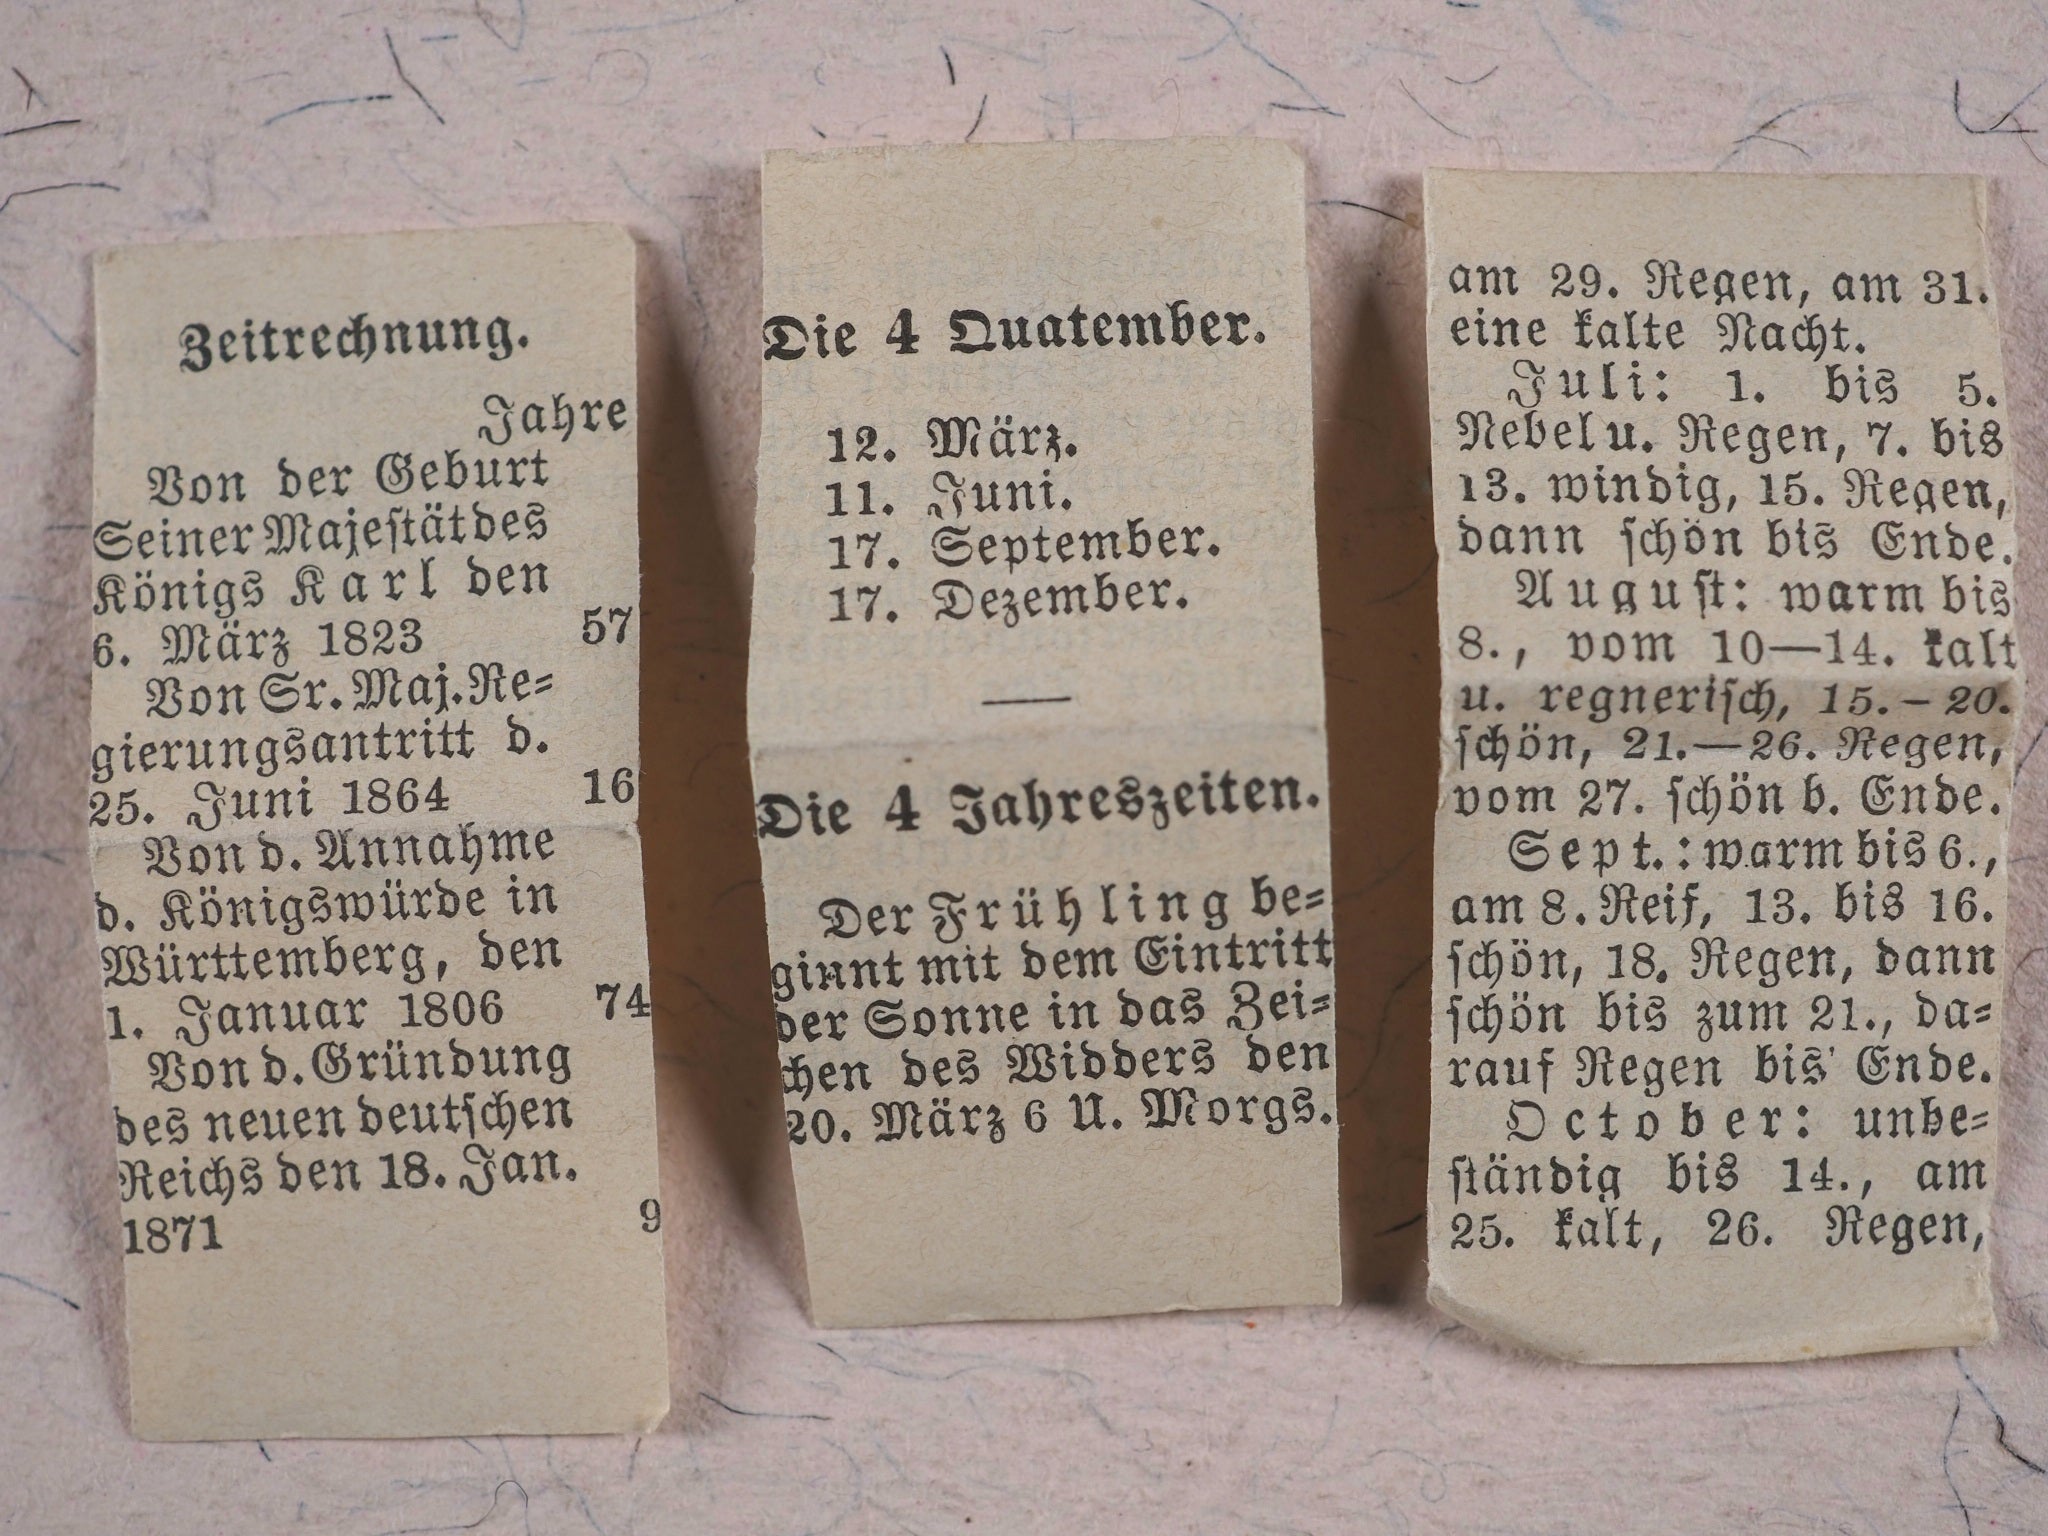 Zeitrechnung.
Jahre
Von der Geburt
Seiner Majestät des
Königs Karl den
6. März 1823 57
Von Sr. Maj. Re=
gierungsantritt d.
25. Juni 1864 16
Von d. Annahme
d. Königswürde in
Württemberg, den
1. Januar 1806 74
Von d. Gründung
des neuen deutschen
Reichs den 18. Jan.
1871 9
Die 4 Quatember.
12. März.
11. Juni.
17. September.
17. Dezember.
Die 4 Jahreszeiten.
Der Frühling be=
ginnt mit dem Eintritt
der Sonne in das Zei=
chen des Widders den
20. März 6 U. Morgs.
am 29. Regen, am 31.
eine kalte Nacht.
Juli: 1. bis 5.
Nebel u. Regen, 7. bis
13. windig, 15. Regen,
dann schön bis Ende.
August: warm bis
8., vom 10—14. kalt
u. regnerisch, 15.–20.
schön, 21.—26. Regen,
vom 27. schön b. Ende.
Sept.: warm bis 6.,
am 8. Reif, 13. bis 16.
schön, 18. Regen, dann
schön bis zum 21., da=
rauf Regen bis Ende.
October: unbe=
ständig bis 14., am
25. kalt, 26. Regen,